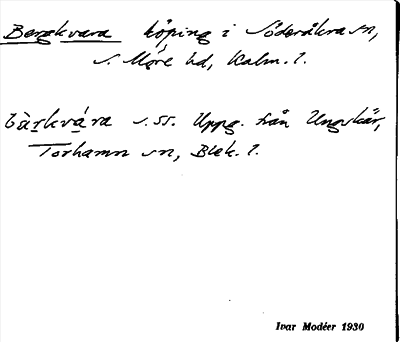 Bergkvara köping i Söderåkra sn,
S. Möre hd, Kalm. l.
bàrkvára s.ss. Uppg. från Ungskär,
Torhamn sn, Blek. l.
Ivar Modéer 1930